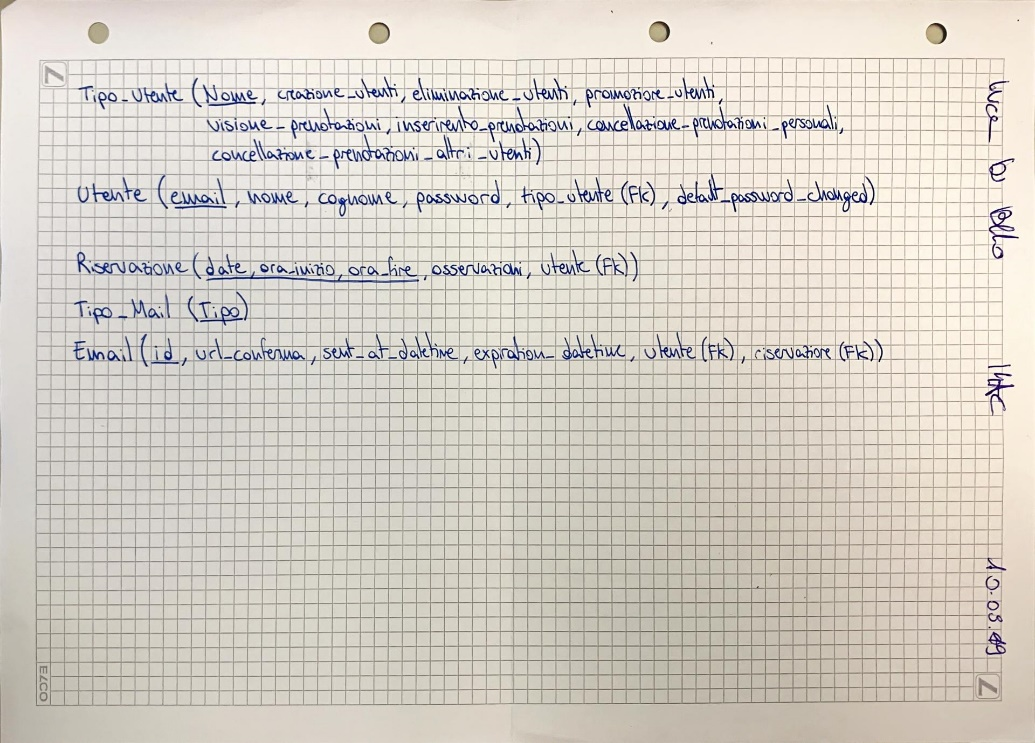 Tipo_Utente (Nome, creazione_utenti, eliminazione_utenti, promozione_utenti,
visione_prenotazioni, inserimento_prenotazioni, cancellazione_prenotazioni_personali,
cancellazione_prenotazioni_altri_utenti)
Utente (email, nome, cognome, password, tipo_utente (FK), default_password_changed)
Riservazione (date, ora_inizio, ora_fine, osservazioni, utente (FK))
Tipo_Mail (Tipo)
Email (id, url_conferma, sent_at_datetime, expiration_datetime, utente (FK), riservazione (FK))
Luca
I4AC
10.09.19
ELCO